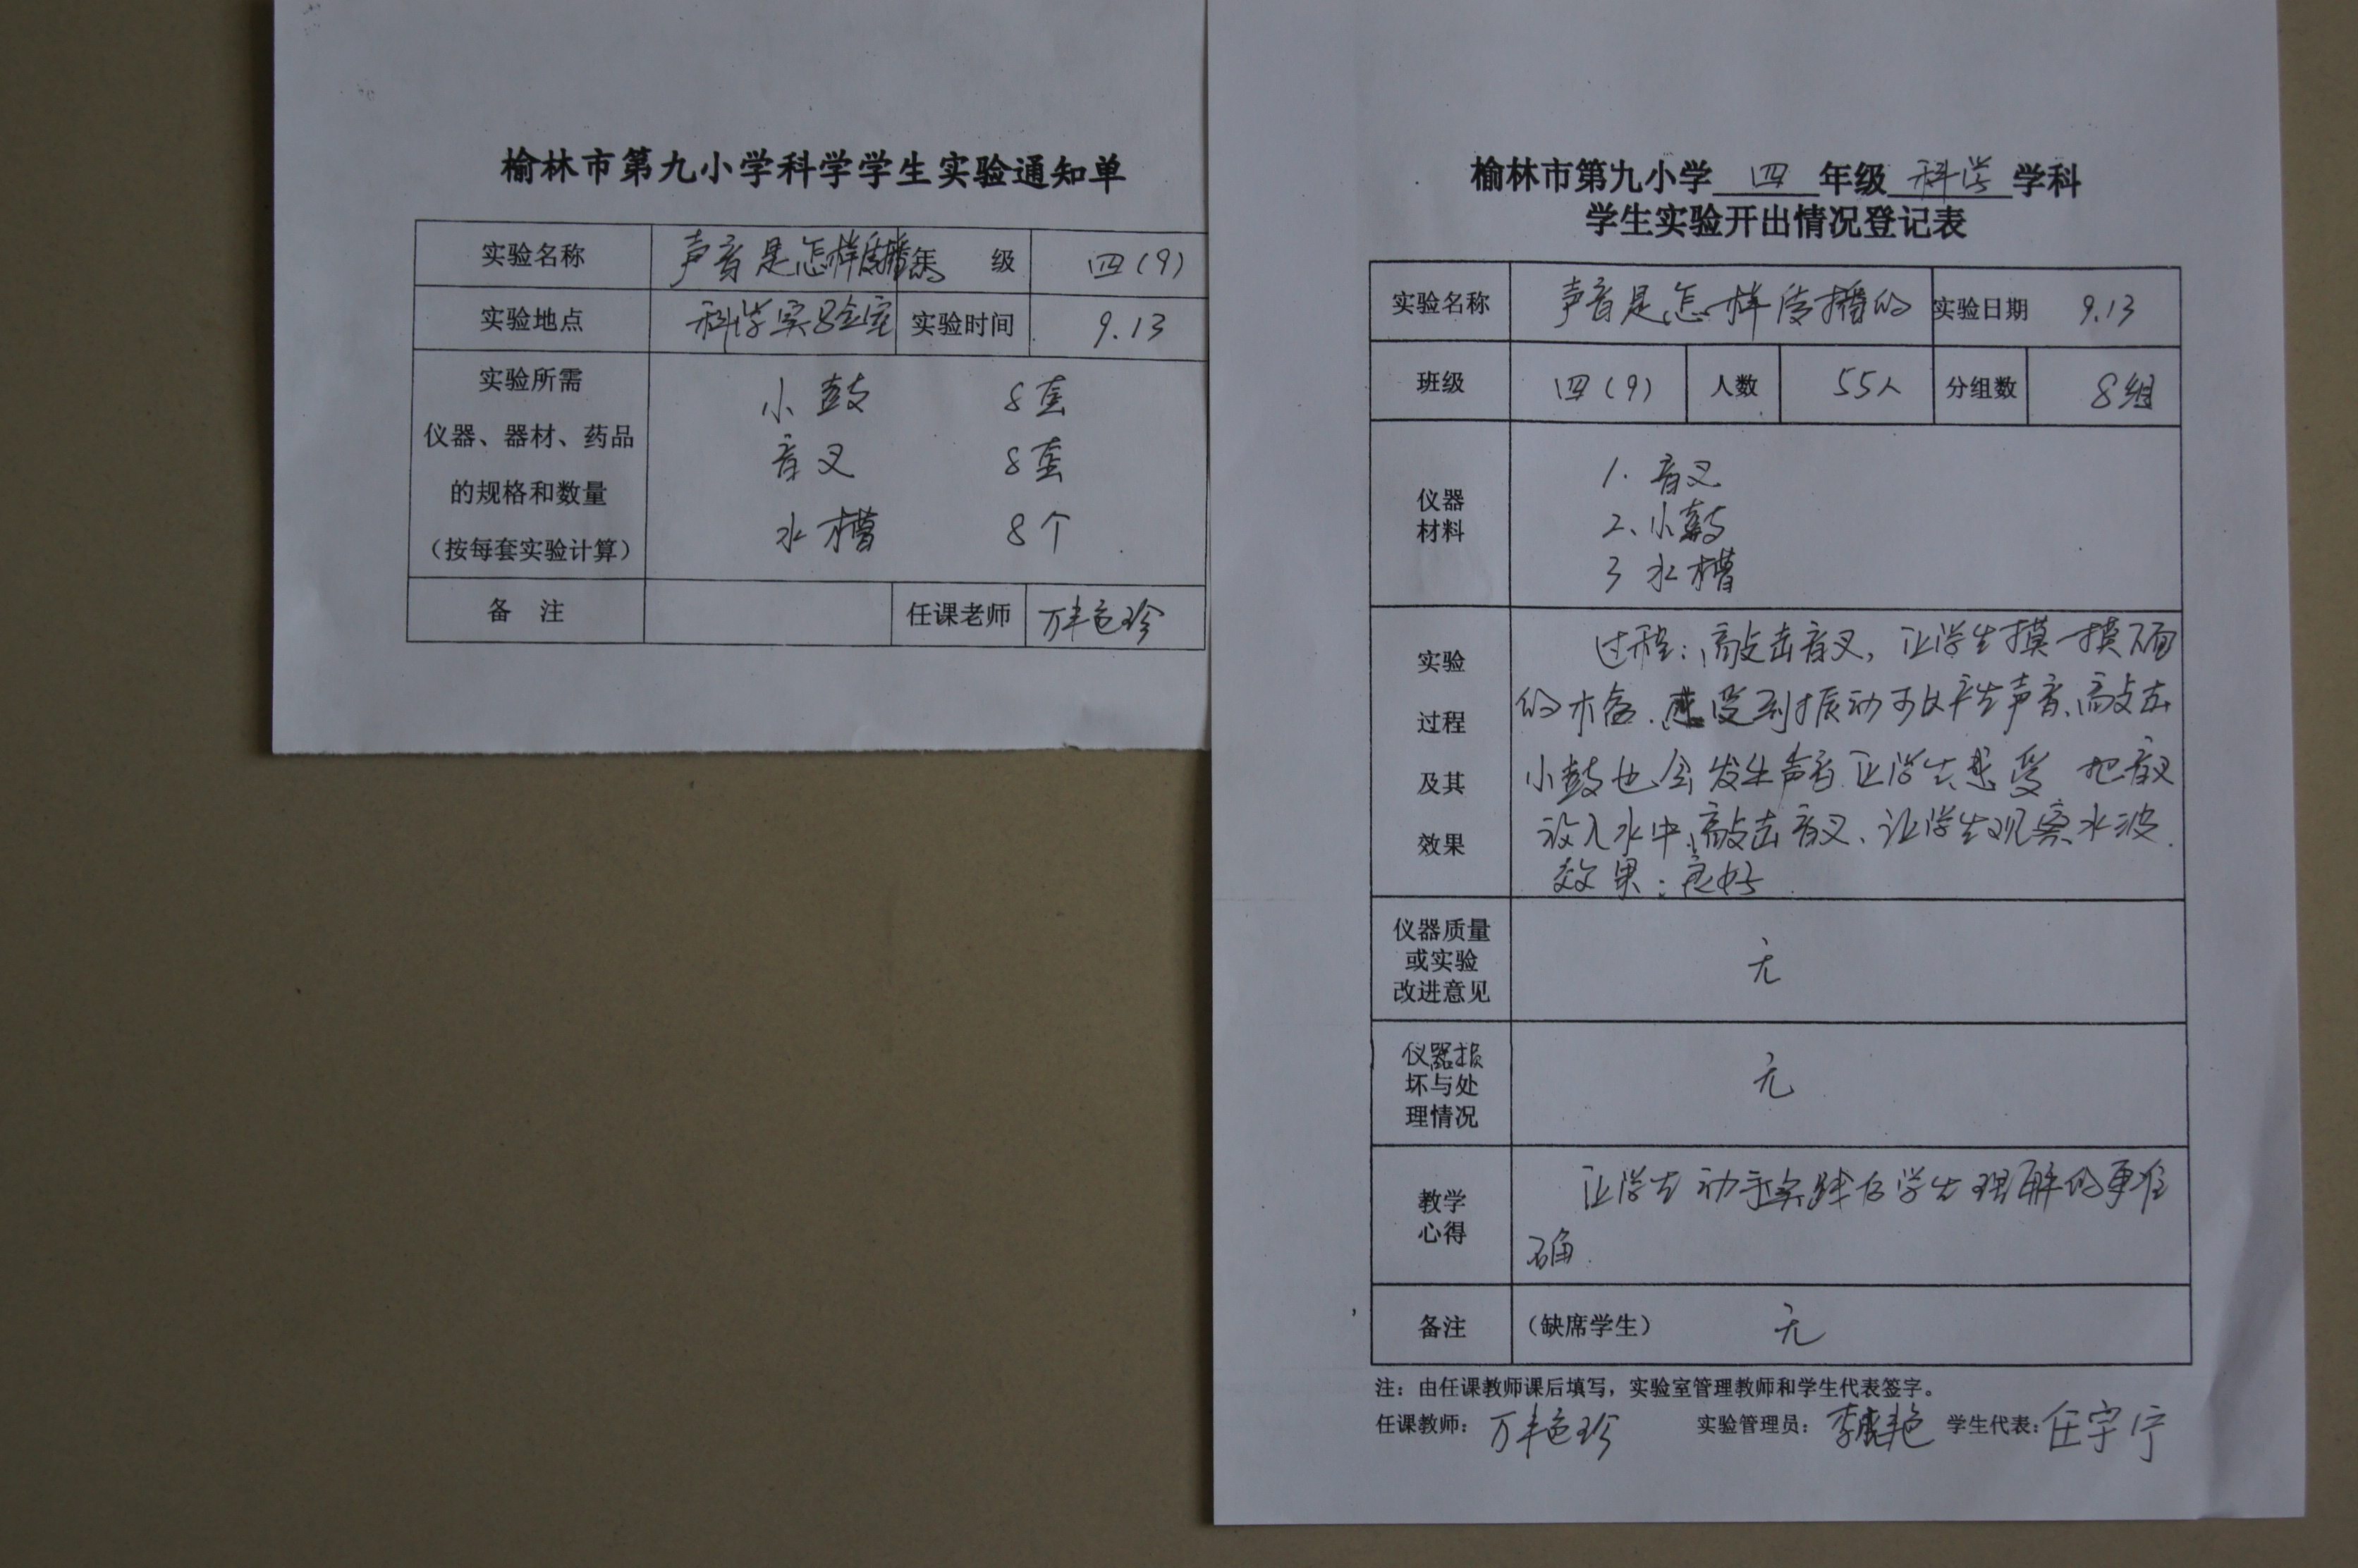 榆林市第九小学科学学生实验通知单
实验名称 声音是怎样传播的 年 级 四(9)
实验地点 科学实验室 实验时间 9.13
实验所需
仪器、器材、药品
的规格和数量
(按每套实验计算)
小鼓 8套
音叉 8套
水槽 8个
备 注 任课老师 万艳珍
榆林市第九小学 四 年级 科学 学科
学生实验开出情况登记表
实验名称 声音是怎样传播的 实验日期 9.13
班级 四(9) 人数 55人 分组数 8组
仪器
材料
1. 音叉
2、小鼓
3 水槽
实验
过程
及其
效果
过程:敲击音叉,让学生摸一摸
的木盒.感受到振动可以产生声音、敲击
小鼓也会发生声音 让学生感受 把音叉
放入水中、敲击音叉、让学生观察水波.
效果:良好
仪器质量
或实验
改进意见
无
仪器损
坏与处
理情况
无
教学
心得
让学生动手实践后学生理解的更准
确.
备注 (缺席学生) 无
注:由任课教师课后填写,实验室管理教师和学生代表签字。
任课教师:万艳珍 实验管理员:李 艳 学生代表:任宇宁